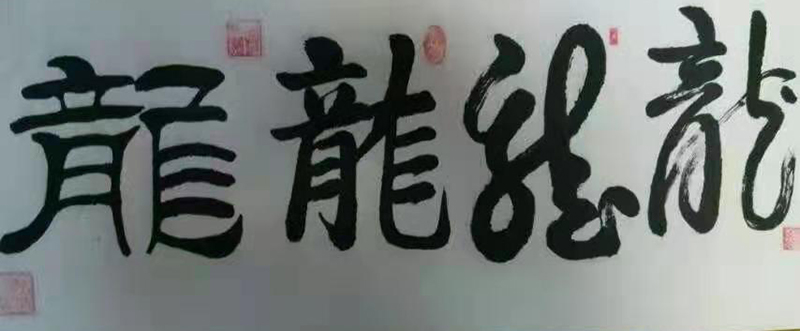 龍龍龍龍